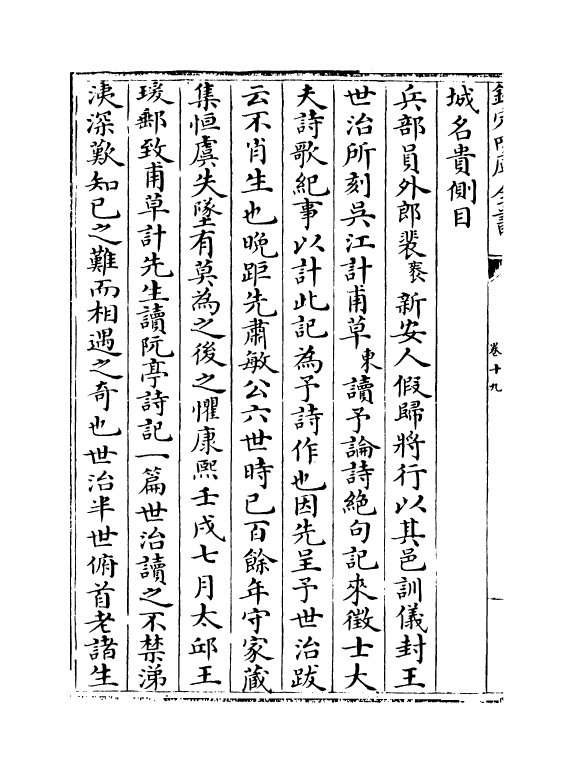 欽定四庫全書
卷十九
城名貴側目
兵部員外郎裴袠新安人假歸將行以其邑訓儀封王
世治所刻吳江計甫草東讀予論詩絕句記來徵士大
夫詩歌紀事以計此記為予詩作也因先呈予世治跋
云不肖生也晚距先肅敏公六世時已百餘年守家藏
集恒虞失墜有莫為之後之懼康熙壬戌七月太邱王
瑗郵致甫草計先生讀阮亭詩記一篇世治讀之不禁涕
洟深歎知已之難而相遇之奇也世治半世俯首老諸生